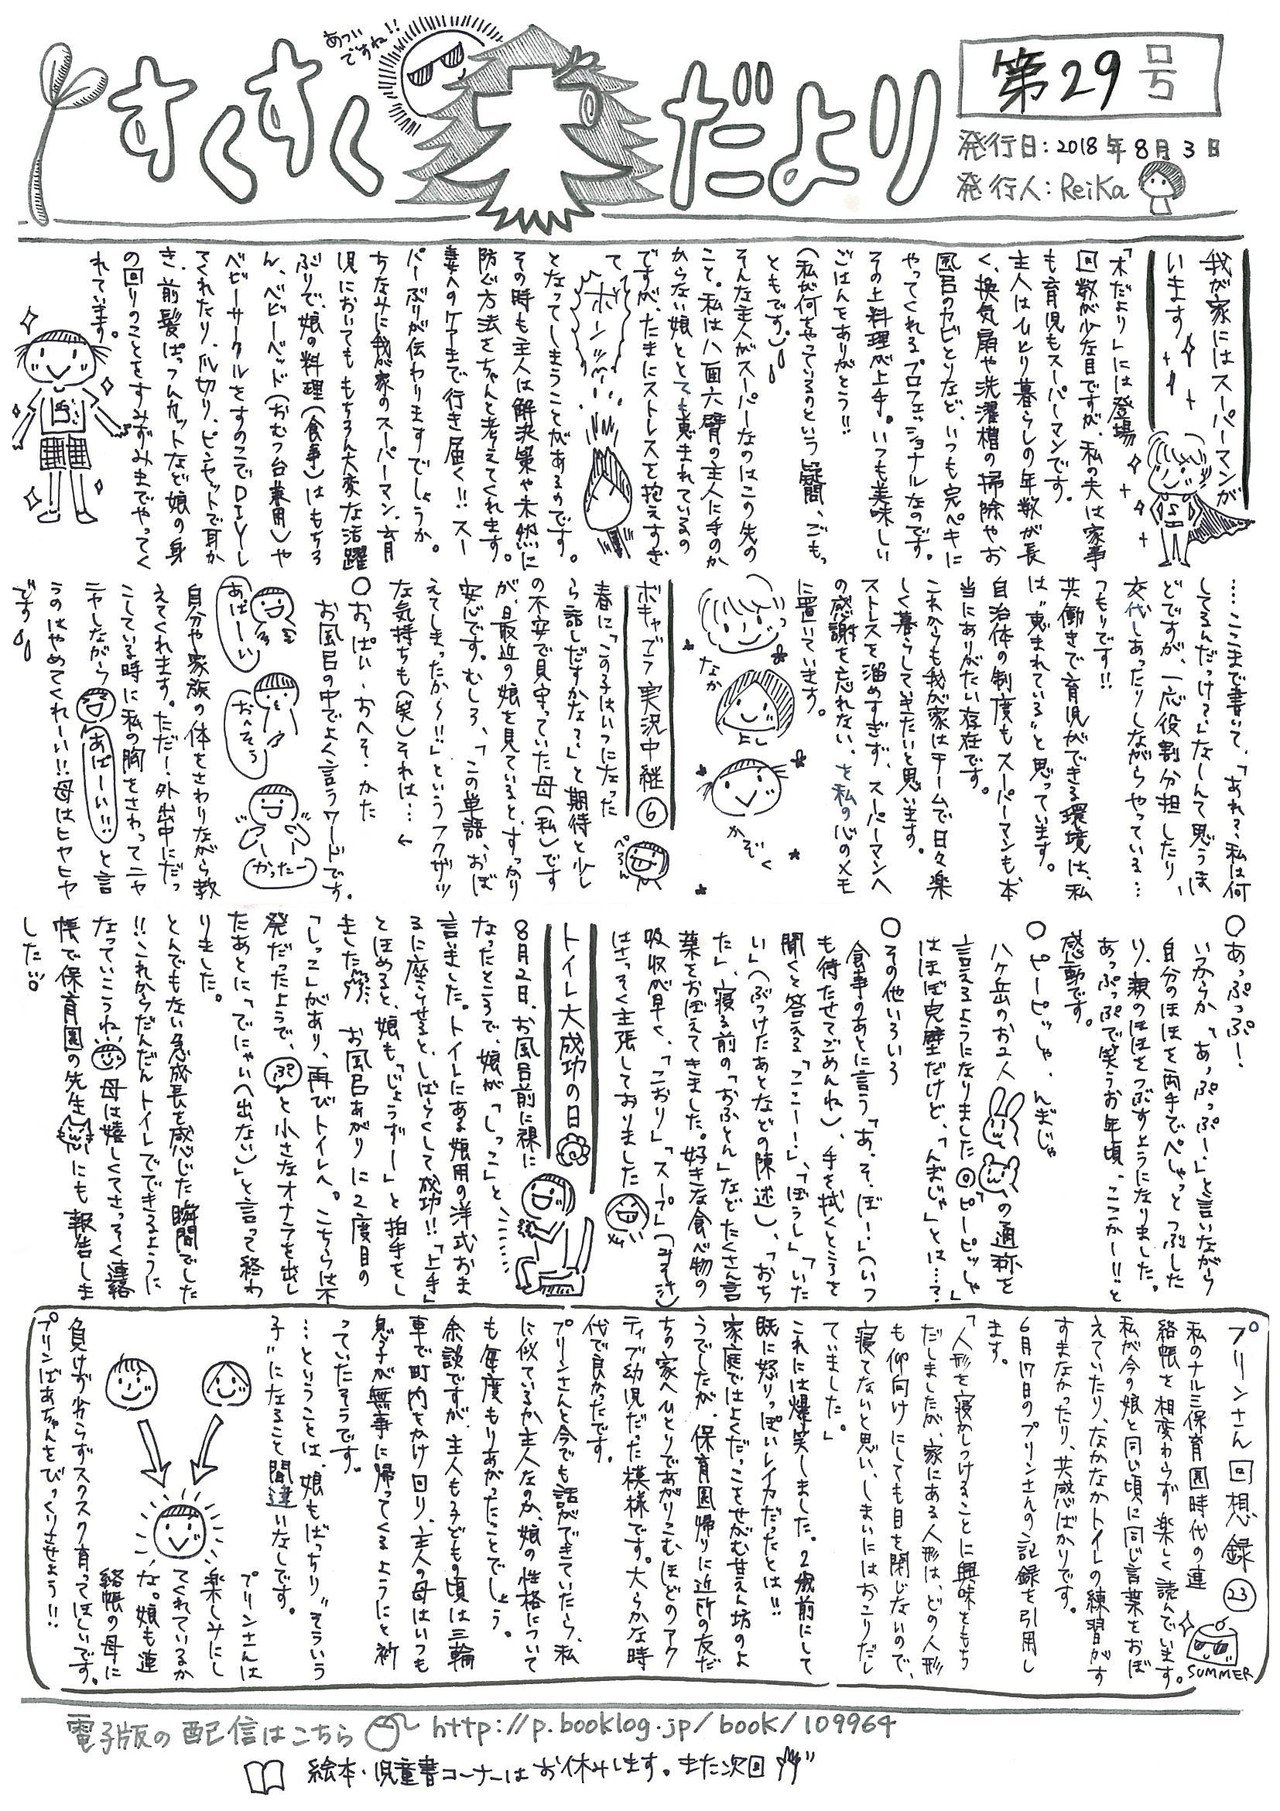 あついですね!!
すくすく木だより
第29号
発行日:2018年8月3日
発行人:ReiKa
我が家にはスーパーマンが
います
「木だより」には登場
回数が少な目ですが、私の夫は家事
も育児もスーパーマンです。
主人はひとり暮らしの年数が長
く、換気扇や洗濯槽の掃除やお
風呂のカビとりなど、いつも完ペキに
やってくれるプロフェッショナルなのです。
その上料理が上手。いつも美味しい
ごはんをありがとう!!
(私が何をやっているのという疑問、ごもっ
ともです。)
そんな主人がスーパーなのはこの先の
こと。私は八面六臂の主人に手のか
からない娘ととても恵まれているの
ですが、たまにストレスを抱えすぎ
て、
ボーンッ
となってしまうことがあるのです。
その時も主人は解決策や未然に
防ぐ方法をちゃんと考えてくれます。
妻へのケアまで行き届く!!スー
パーぶりが伝わりますでしょうか。
ちなみに我が家のスーパーマン、育
児においてももちろん大変な活躍
ぶりで、娘の料理(食事)はもちろ
ん、ベビーベッド(おむつ台兼用)や
ベビーサークルをすのこでDIYし
てくれたり、爪切り、ピンセットで耳か
き、前髪ぱっつんカットなど娘の身
の回りのことをすみずみまでやってく
れています。
…ここまで書いて、「あれ?、私は何
してるんだっけ?」なーんて思うほ
どですが、一応役割分担したり、
交代しあったりしながらやっている…
つもりです!!
共働きで育児ができる環境は、私
は“恵まれている”と思っています。
自治体の制度もスーパーマンも本
当にありがたい存在です。
これからも我が家はチームで日々楽
しく暮らしていきたいと思います。
ストレスを溜めすぎず、スーパーマンへ
の感謝を忘れない、を私の心のメモ
に置いています。
なか
よし
かぞく
ボキャブラ実況中継⑥
ぺろーん
春に「この子はいつになった
ら話しだすかな?」と期待と少し
の不安で見守っていた母(私)です
が、最近の娘を見ていると、すっかり
安心です。むしろ、「この単語、おぼ
えてしまったか〜!!」というフクザツ
な気持ちも(笑)それは…
○おっぱい・おへそ・かた
お風呂の中でよく言うワードです。
あぱーい
おへそう
かったー
自分や家族の体をさわりながら教
えてくれます。ただー、外出中にだっ
こしている時に私の胸をさわってニヤ
ニヤしながら「あぱーい!!」と言
うのはやめてくれーい!!母はヒヤヒヤ
です
○あっぷっぷー!
いつからか「あっぷっぷー」と言いながら
自分のほほを両手でぺしゃっとつぶした
り、親のほほをつぶすようになりました。
あっぷっぷで笑うお年頃、ここかー!!と
感動です。
○ピーピッしゃ、んまじゃ
八ヶ岳のお2人の通称を
言えるようになりました◎「ピーピッしゃ」
はほぼ完璧だけど、「んまじゃ」とは…?
○その他いろいろ
食事のあとに言う「あ、そ、ぼー!」(いつ
も待たせてごめんね)、手を拭くところを
聞くと答える「ここー!」、「ぼうし」「いた
い」(ぶつけたあとなどの陳述)、「おち
た」、寝る前の「おふとん」などたくさん言
葉をおぼえてきました。好きな食べ物の
吸収が早く、「こおり」「スープ」(みそ汁)
はさっそく主張しておりました
トイレ大成功の日
8月2日、お風呂前に裸に
なったところで、娘が「しっこ」と
言いました。トイレにある娘用の洋式おま
るに座らせると、しばらくして成功!!「上手」
とほめると、娘も「じょうずー」と拍手をし
ました(笑)お風呂あがりに2度目の
「しっこ」があり、再びトイレへ。こちらは不
発だったようで、ぷっと小さなオナラを出し
たあとに「でにゃい(出ない)」と言って終わ
りました。
とんでもない急成長を感じた瞬間でした
!!これからだんだんトイレでできるように
なっていこうね 母は嬉しくてさっそく連絡
帳で保育園の先生にも報告しま
した!!
プリンさん回想録㉓
SUMMER
私のナル三保育園時代の連
絡帳を相変わらず楽しく読んでいます。
私が今の娘と同い頃に同じ言葉をおぼ
えていたり、なかなかトイレの練習がす
すまなかったり、共感ばかりです。
6月17日のプリンさんの記録を引用し
ます。
「人形を寝かしつけることに興味をもち
だしましたが、家にある人形は、どの人形
も仰向けにしても目を閉じないので、
寝てないと思い、しまいにはおこりだし
ていました。」
これには爆笑しました。2歳前にして
既に怒りっぽいレイカだったとは!!
家庭ではよくだっこをせがむ甘えん坊のよ
うでしたが、保育園帰りに近所の友だ
ちの家へひとりであがりこむほどのアク
ティブ幼児だった模様です。大らかな時
代で良かったです。
プリンさんと今でも話ができていたら、私
に似ているか主人なのか、娘の性格について
も毎度もりあがったことでしょう。
余談ですが、主人も子どもの頃は三輪
車で町内をかけ回り、主人の母はいつも
息子が無事に帰ってくるようにと祈
っていたそうです。
…ということは、娘もばっちり“そういう
子”になること間違いなしです。
プリンさんは
楽しみにし
てくれているか
な。娘も連
絡帳の母に
負けず劣らずスクスク育ってほしいです。
プリンばあちゃんをびっくりさせよう!!
電子版の配信はこちら http://p.booklog.jp/book/109964
絵本・児童書コーナーはお休みします。また次回